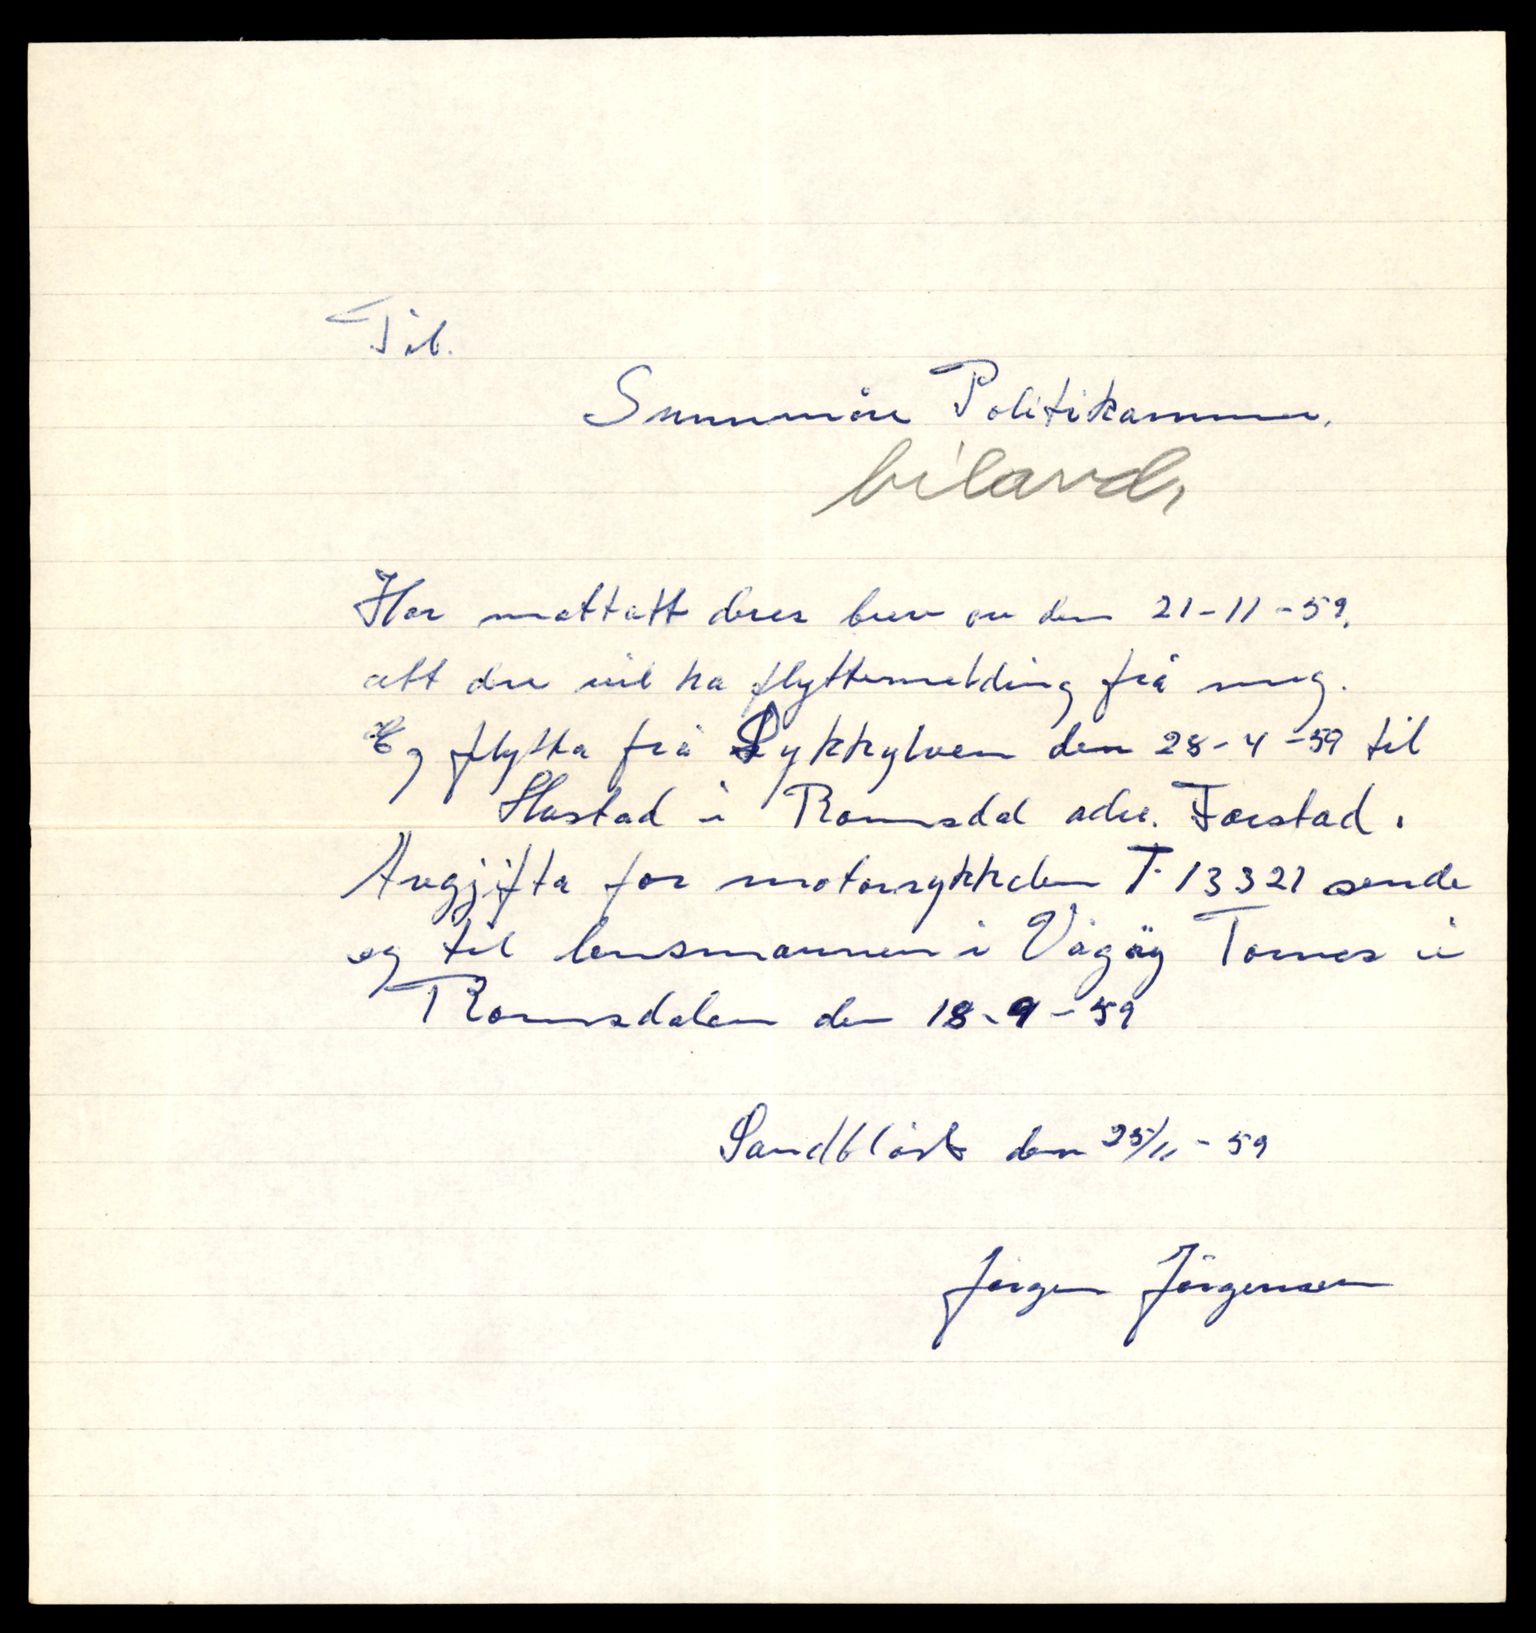 Til.
Sunnmöre Politikammer.
bilavd,
Har mottatt deres brev av den 21-11-59,
att dre vil ha flyttemelding frå meg.
Eg flytta frå Sykkylven den 28-4-59 til
Hustad i Romsdal adr. Farstad.
Avgjifta for motorsykkelen T-13321 sende
eg til lensmannen i Vågöy Tornes i
Romsdalen den 18-9-59
Sandblåst den 25/11-59
Jörgen Jörgensen